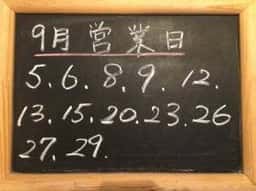 9月 営業日
5.6.8.9.12.
13.15.20.23.26
27.29.